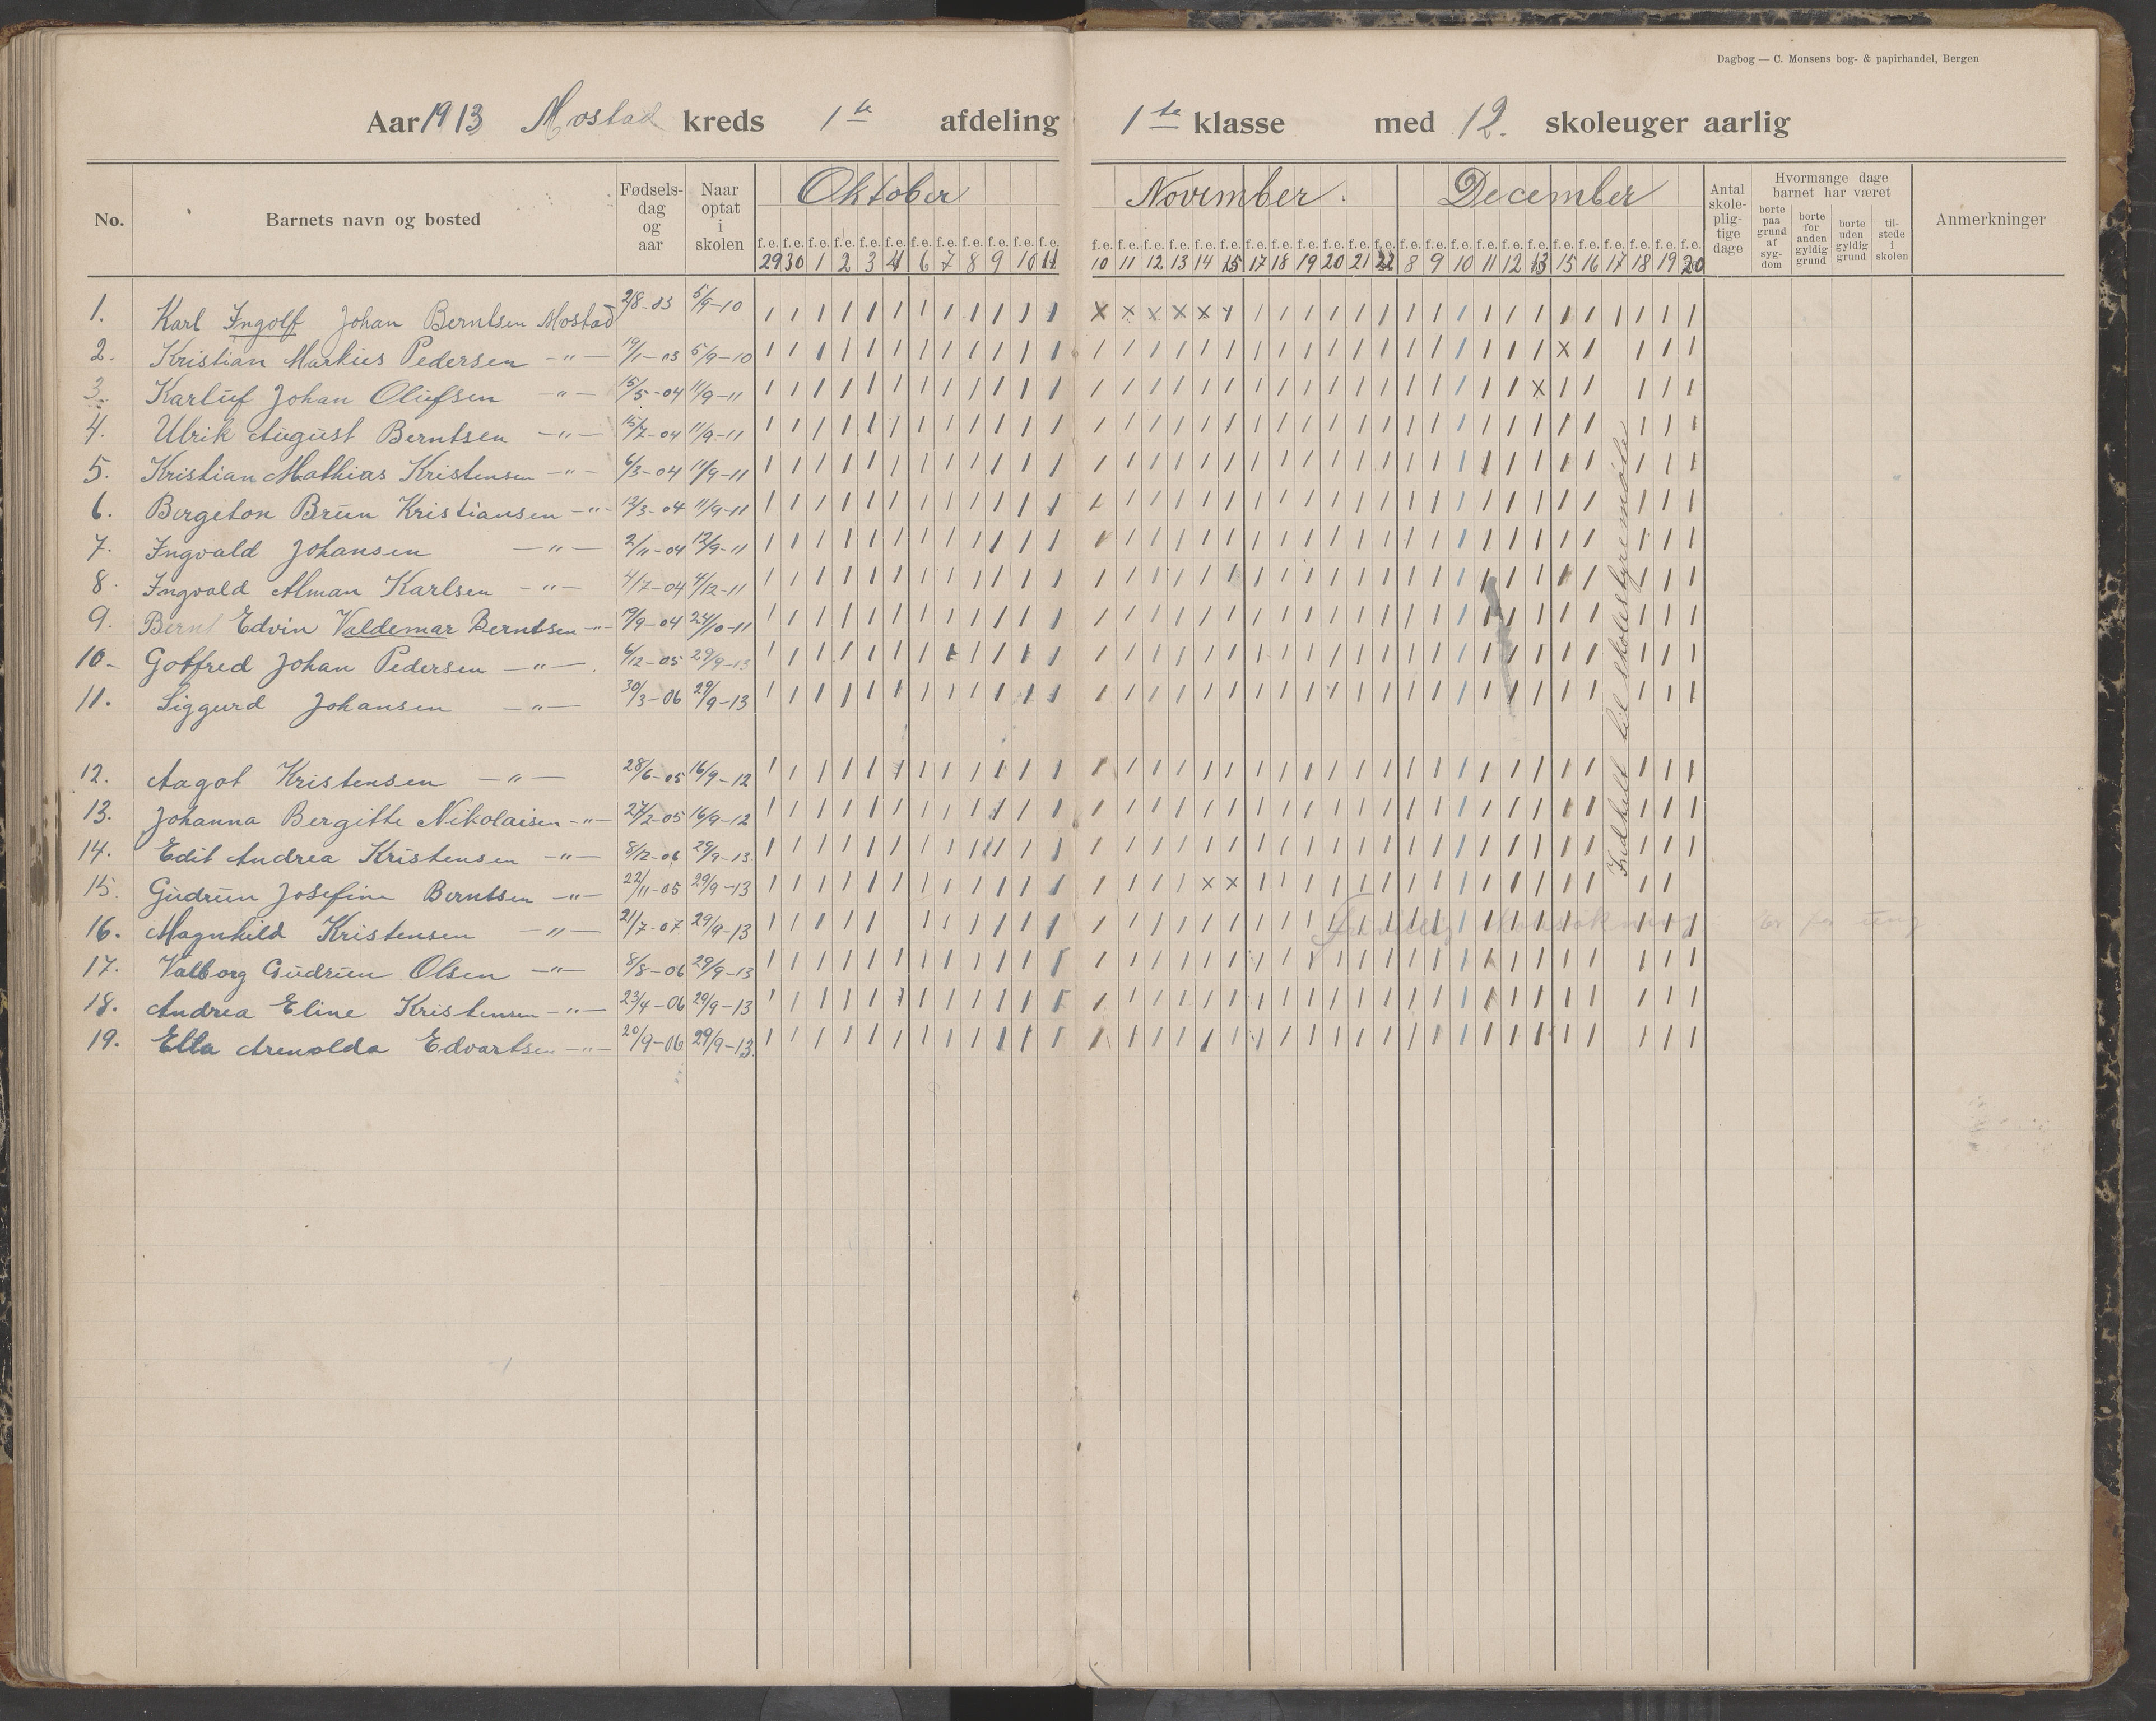 Dagbog — C. Monsens bog- & papirhandel, Bergen
Aar 1913 Mostad kreds 1te afdeling 1te klasse med 12. skoleuger aarlig
No. Barnets navn og bosted Fødsels-dag og aar Naar optat i skolen Oktober November. December Antal skole-plig-tige dage Hvormange dage barnet har været Anmerkninger
borte paa grund af syg-dom borte for anden gyldig grund borte uden gyldig grund til-stede i skolen
f.e. f.e. f.e. f.e. f.e. f.e. f.e. f.e. f.e. f.e. f.e. f.e. f.e. f.e. f.e. f.e. f.e. f.e. f.e. f.e. f.e. f.e. f.e. f.e. f.e. f.e. f.e. f.e. f.e. f.e. f.e. f.e. f.e. f.e. f.e. f.e.
29 30 1 2 3 4 6 7 8 9 10 11 10 11 12 13 14 15 17 18 19 20 21 22 8 9 10 11 12 13 15 16 17 18 19 20
1. Karl Ingolf Johan Berntsen Mostad 2/8-03 5/9-10 / / / / / / / / / / / / x x x x x x / / / / / / / / / / / / / / / / / /
2. Kristian Markus Pedersen —"— 19/1-03 5/9-10 / / / / / / / / / / / / / / / / / / / / / / / / / / / / / / x / / / /
3. Karluf Johan Olufsen —"— 15/5-04 11/9-11 / / / / / / / / / / / / / / / / / / / / / / / / / / / / / x / / / / /
4. Ulrik August Berntsen —"— 15/7-04 11/9-11 / / / / / / / / / / / / / / / / / / / / / / / / / / / / / / / / / / /
5. Kristian Mathias Kristensen —"— 6/3-04 11/9-11 / / / / / / / / / / / / / / / / / / / / / / / / / / / / / / / / / / /
6. Birgeton Brun Kristiansen —"— 12/3-04 11/9-11 / / / / / / / / / / / / / / / / / / / / / / / / / / / / / / / / / / /
7. Ingvald Johansen —"— 2/11-04 12/9-11 / / / / / / / / / / / / / / / / / / / / / / / / / / / / / / / / / / /
8. Ingvald Alman Karlsen —"— 4/7-04 4/12-11 / / / / / / / / / / / / / / / / / / / / / / / / / / / / / / / / / / /
9. Bernt Edvin Valdemar Berntsen —"— 19/9-04 24/10-11 / / / / / / / / / / / / / / / / / / / / / / / / / / / / / / / / / / /
10. Goffred Johan Pedersen —"— 6/12-05 29/9-13 / / / / / / / / / / / / / / / / / / / / / / / / / / / / / / / / / / /
11. Siggurd Johansen —"— 30/3-06 29/9-13 / / / / / / / / / / / / / / / / / / / / / / / / / / / / / / / / / / /
12. Aagot Kristensen —"— 28/6-05 16/9-12 / / / / / / / / / / / / / / / / / / / / / / / / / / / / / / / / / / /
13. Johanna Bergitte Nikolaisen —"— 27/2-05 16/9-12 / / / / / / / / / / / / / / / / / / / / / / / / / / / / / / / / / / /
14. Edit Andrea Kristensen —"— 8/12-06 29/9-13. / / / / / / / / / / / / / / / / / / / / / / / / / / / / / / / / / / /
15. Gudrun Josefine Berntsen —"— 22/11-05 29/9-13 / / / / / / / / / / / / / / / / x x / / / / / / / / / / / / / / / /
16. Magnhild Kristensen —"— 21/7-07. 29/9-13 / / / / / / / / / / / / / / / / / / / / / / / / / / / / / / / / / /
17. Valborg Gudrun Olsen —"— 8/8-06 29/9-13 / / / / / / / / / / / / / / / / / / / / / / / / / / / / / / / / / / /
18. Andrea Eline Kristensen —"— 23/4-06 29/9-13 / / / / / / / / / / / / / / / / / / / / / / / / / / / / / / / / / / /
19. Ella Arenolda Edvartsen —"— 20/9-06 29/9-13. / / / / / / / / / / / / / / / / / / / / / / / / / / / / / / / / / / /
Indkaldt til skolestyremøte